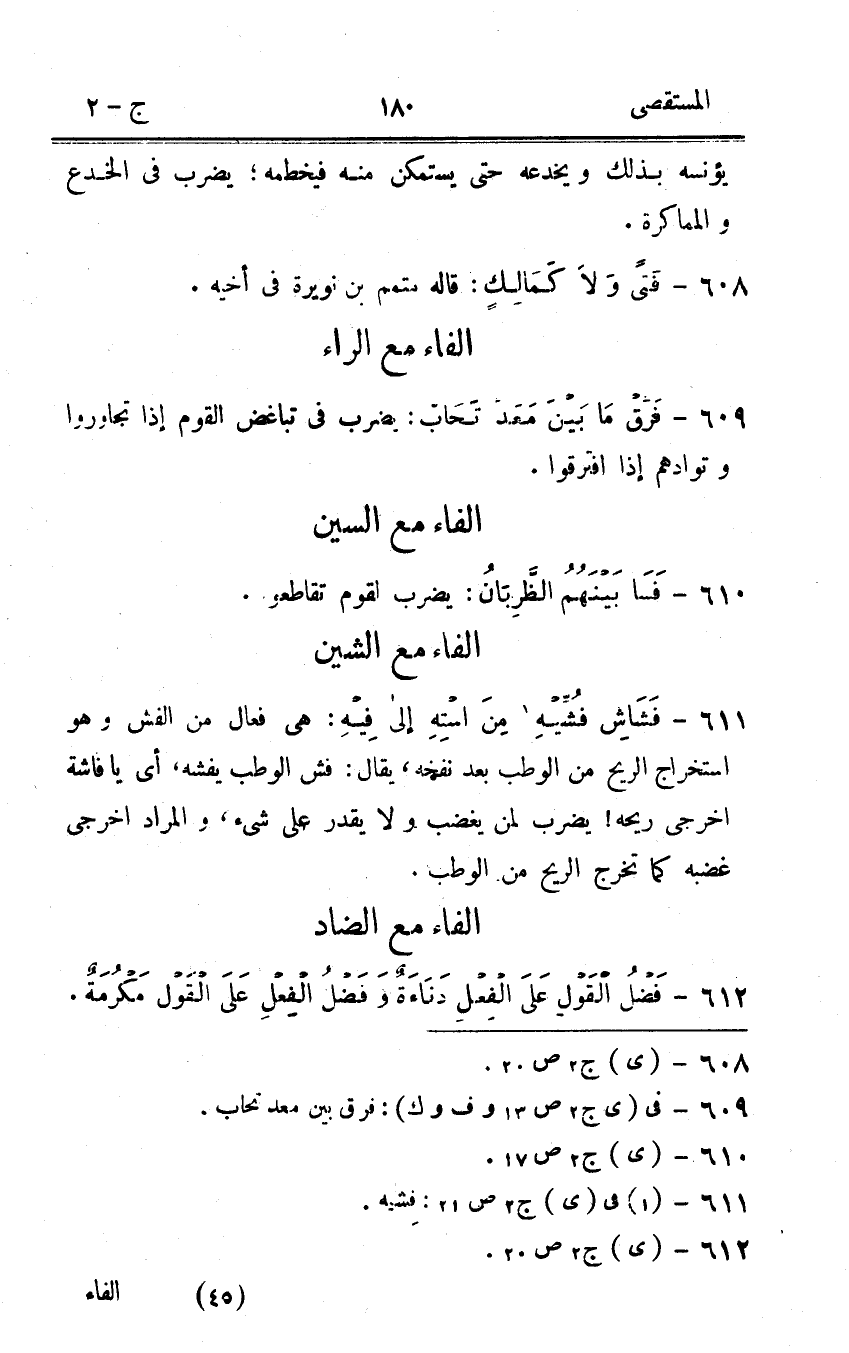 المستقصى ١٨٠ ج – ٢
يؤنسه بذلك و يخدعه حتى يستمكن منه فيخطمه؛ يضرب فى الخدع
و المماكرة .
٦٠٨ – فَتًى وَ لاَ كَمَالِكٍ: قاله متمم بن نويرة فى أخيه .
الفاء مع الراء
٦٠٩ – فَرْقٌ مَا بَيْنَ مَعَدّ تَحَابّ: يضرب فى تباغض القوم إذا تجاوروا
و توادهم إذا افترقوا .
الفاء مع السين
٦١٠ – فَسَا بَيْنَهُمُ الظَّرِبَانُ: يضرب لقوم تقاطعو .
الفاء مع الشين
٦١١ – فَشَاشِ فُشِّيْهِ ١ مِنَ اسْتِهِ إِلىٰ فِيْهِ: هى فعال من الفش و هو
استخراج الريح من الوطب بعد نفخه، يقال: فش الوطب يفشه، أى يا فاشة
اخرجى ريحه! يضرب لمن يغضب و لا يقدر على شىء، و المراد اخرجى
غضبه كما تخرج الريح من الوطب .
الفاء مع الضاد
٦١٢ – فَضْلُ الْقَوْلِ عَلَى الْفِعْلِ دَنَاءَةٌ وَ فَضْلُ الْفِعْلِ عَلَى الْقَوْلِ مَكْرُمَةٌ .
٦٠٨ – (ى) ج٢ ص ٢٠ .
٦٠٩ – فى (ى ج٢ ص ١٣ و ف و ك): فرق بين معد تحاب .
٦١٠ – (ى) ج٢ ص ١٧ .
٦١١ – (١) فى (ى) ج٢ ص ٢١ : فشيه .
٦١٢ – (ى) ج٢ ص ٢٠ .
(٤٥) الفاء